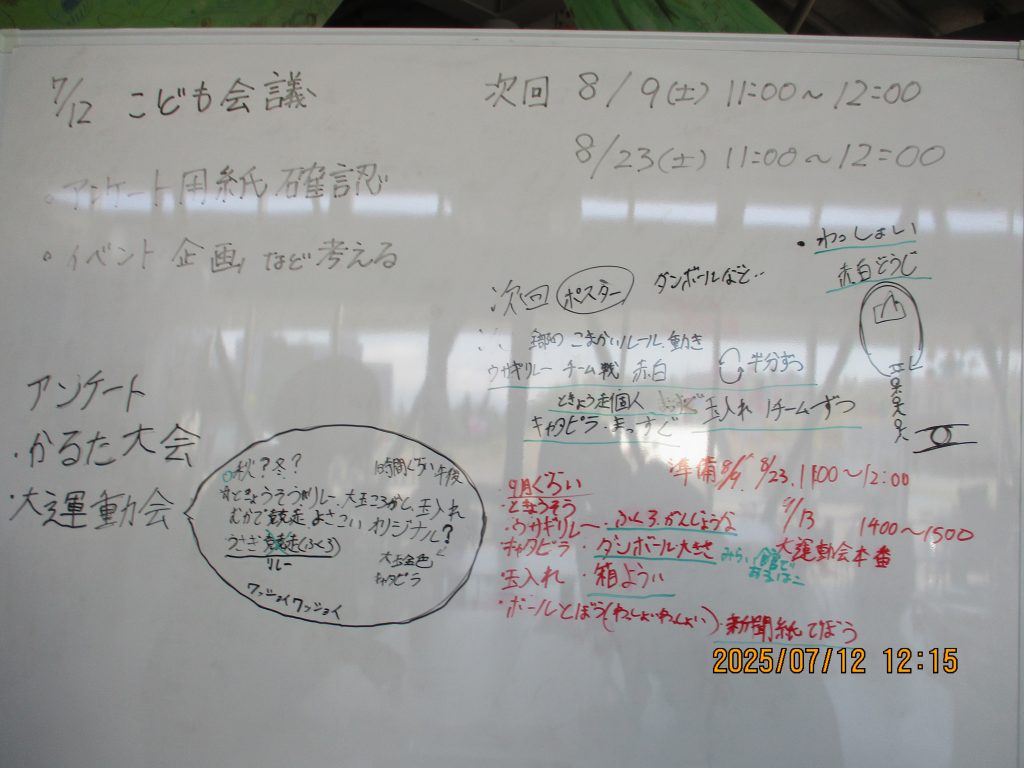 7/12 こども会議
次回 8/9(土) 11:00〜12:00
8/23(土) 11:00〜12:00
・アンケート用紙 確認
・イベント 企画 など考える
・わっしょい
赤白どうじ
次回 ポスター ダンボールなど‥
こまかいルール、動き
ウサギリレー チーム戦 赤白 半分ずつ
ときょう走個人 玉入れ 1チームずつ
キャタピラ・まっすぐ
アンケート
・かるた大会
・大運動会
秋?冬? 1時間ぐらい 午後
ときょうそう リレー、大玉ころがし、玉入れ
むかで競走 よさこい オリジナル?
うさぎ競走(ふくろ)
リレー
大玉金色
キャタピラ
ワッショイワッショイ
準備 8/9、8/23、11:00〜12:00
9/13 1400〜1500
大運動会本番
・9月ぐらい
・ときょうそう
・ウサギリレー・ふくろ、がんじょうな
キャタピラ・ダンボール大きさ
みらい館で
玉入れ・箱ようい
・ボールとぼう(わっしょいわっしょい)・新聞紙でぼう
2025/07/12 12:15